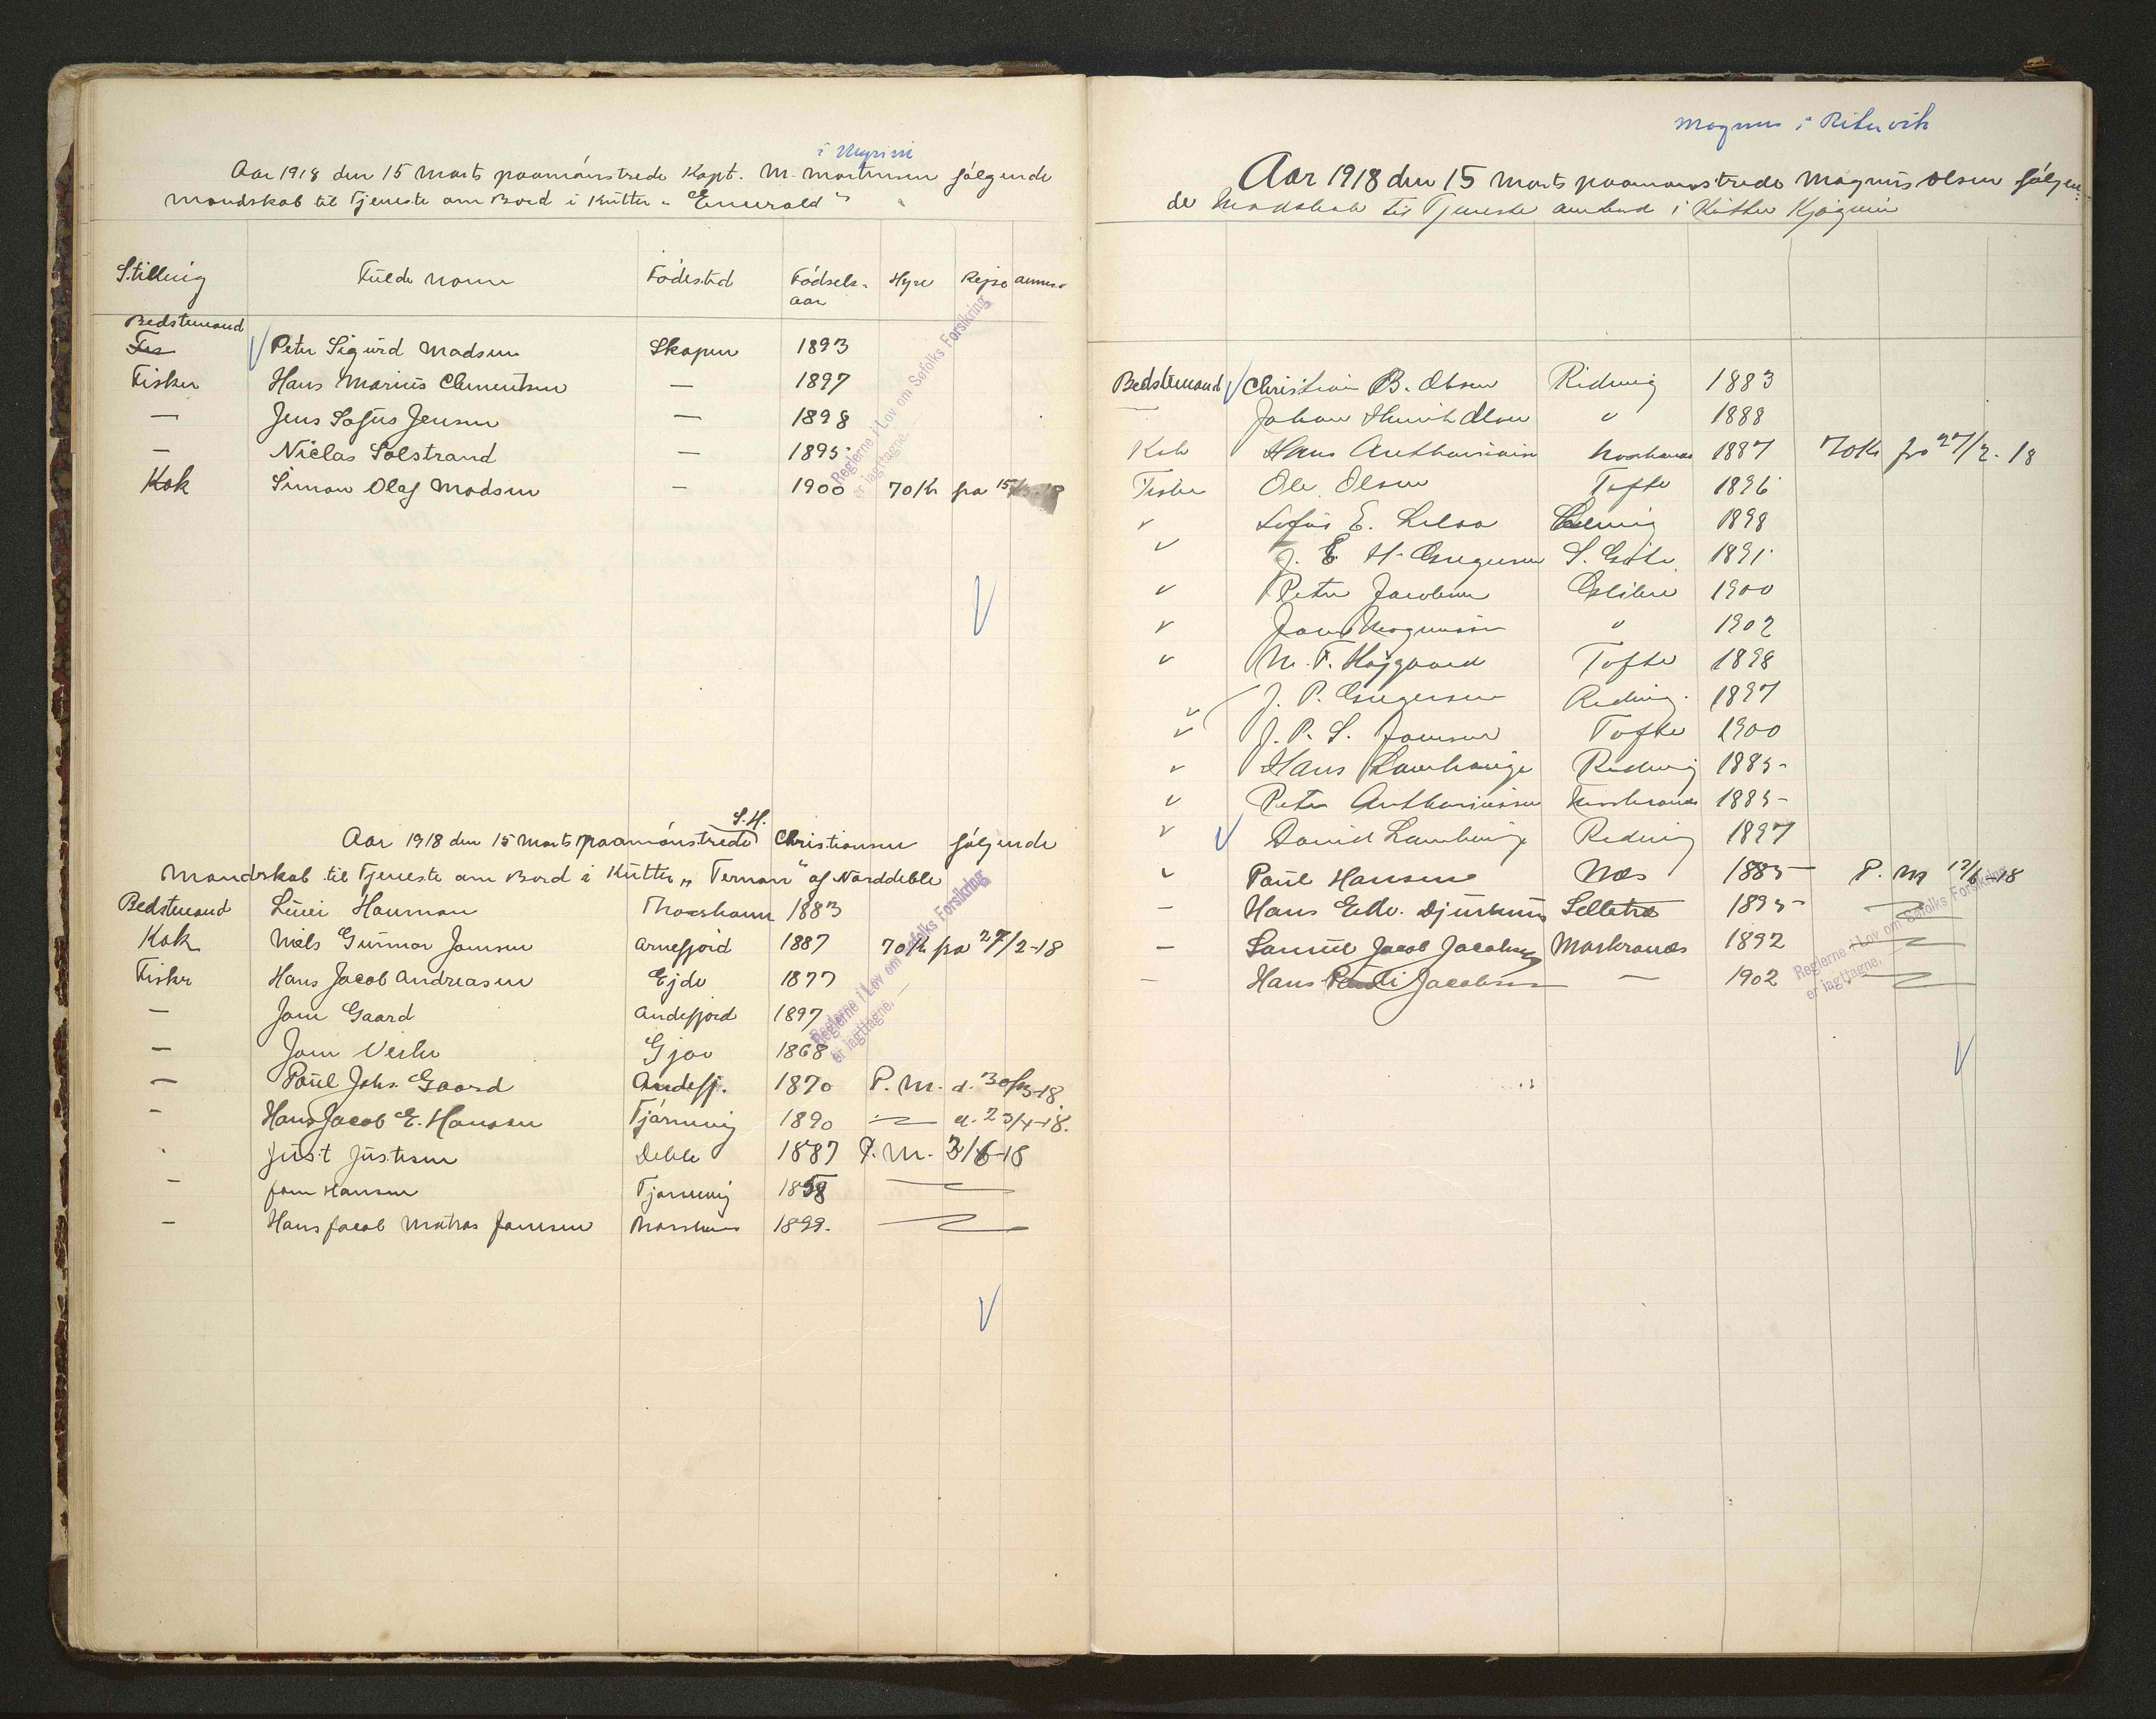 i Mýrini
Aar 1918 den 15 Marts paamönstrede Kapt. M. Mortensen følgende
Mandskab til Tjeneste om Bord i Kutter „Emerald"
Stilling Fulde Navn Födested Födsels- aar Hyre Rejse
Bedstemand
Fis Peter Sigurd Madsen Skopun 1893
Fisker Hans Marius Clementsen — 1897
— Jens Sofus Jensen — 1898
— Niclas Solstrand — 1895
Kok Simon Olaf Madsen — 1900 70 Kr fra 15/3-18
Reglerne i Lov om Søfolks Forsikring
er iagttagne. —
S. H.
Aar 1918 den 15 Marts paamönstrede Christiansen følgende
Mandskab til Tjeneste om Bord i Kutter „Ternan" af Norddeble
Bedstemand Hauman Thorshavn 1883
Kok Niels Gunnar Joensen Arnefjord 1887 70 Kr fra 27/2-18
Fisker Hans Jacob Andreasen Ejde 1877
— Joen Gaard Andefjord 1897
— Joen Gjov 1868
— Poul Johs. Gaard Andefj. 1870 P. M. d. 30/3-18
— Hans Jacob E. Hansen Tjörnevig 1890 — d. 23/4-18.
Just Justesen Deble 1887 P. M. 3/6-18
— Joen Hansen Tjörnevig 18
— Hans Jacob Matras Joensen 1899. —
Reglerne i Lov om Søfolks Forsikring
er iagttagne. —
Magnus i Rituvik
Aar 1918 den 15 Marts paamönstrede Magnus Olsen følgen-
de Mandskab til Tjeneste ombord i Kutter Kjøguin
Bedstemand Christian B. Olsen Ridevig 1883
— Johan Henrik Olsen " 1888
Kok Hans Anthoniussen 1887 70 Kr fra 27/2-18
Fisker Ole Olsen Tofte 1896
" Sofus E. 1898
" J. E. H. Gregersen S. Gøte 1891
" Peter Jacobsen 1900
" Magnussen " 1902
" M. F. Højgaard Tofte 1898
" J. P. Gregersen Redevig. 1897
" J. P. S. Joensen Tofte 1900
" Hans Lamhauge Redevig 1885-
" Peter Anthoniussen 1885-
" David Lamhauge Redevig 1897
" Poul Hansen Næs 1885- P. M 17/6-18
— Hans Edv. Djurhuus Selletræ 1895- —
— Samuel Jacob Jacobsen Morkranæs 1892 —
— Hans Pauli Jacobsen — 1902 —
Reglerne i Lov om Søfolks Forsikring
er iagttagne. —